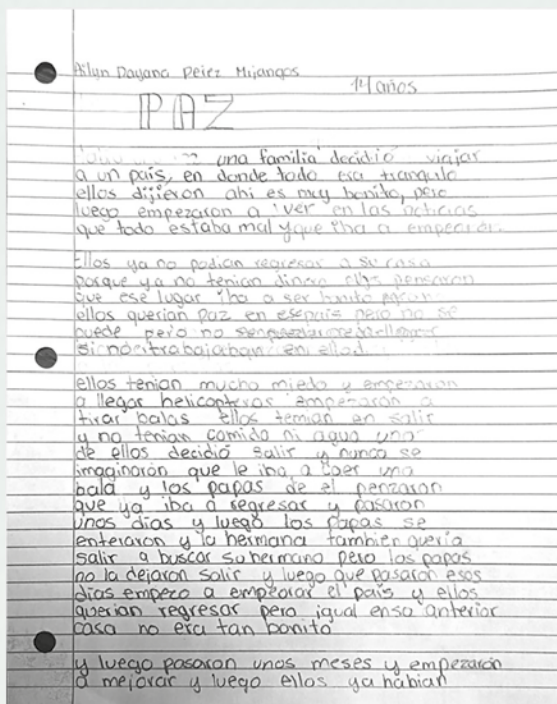 Ailyn Dayana Perez Mijangos
14 años
PAZ
una familia decidió viajar
a un país, en donde todo era tranquilo
ellos dijieron ahi es muy bonito, pero
luego empezaron a ver en las noticias
que todo estaba mal y que iba a empeorar.
Ellos ya no podian regresar a su casa
porque ya no tenian dinero ellos pensaron
que ese lugar iba a ser bonito
ellos querian paz en ese pais pero no se
puede pero no
si no trabajaban en ellod.
ellos tenian mucho miedo y empezaron
a llegar helicopteros empezaron a
tirar balas ellos temian en salir
y no tenian comida ni agua uno
de ellos decidió salir y nunca se
imaginaron que le iba a caer una
bala y los papas de el penzaron
que ya iba a regresar y pasaron
unos dias y luego los papas se
enteraron y la hermana tambien queria
salir a buscar su hermano pero los papas
no la dejaron salir y luego que pasaron esos
dias empezo a empeorar el país y ellos
querian regresar pero igual en su anterior
casa no era tan bonito
y luego pasaron unos meses y empezaron
a mejorar y luego ellos ya habian